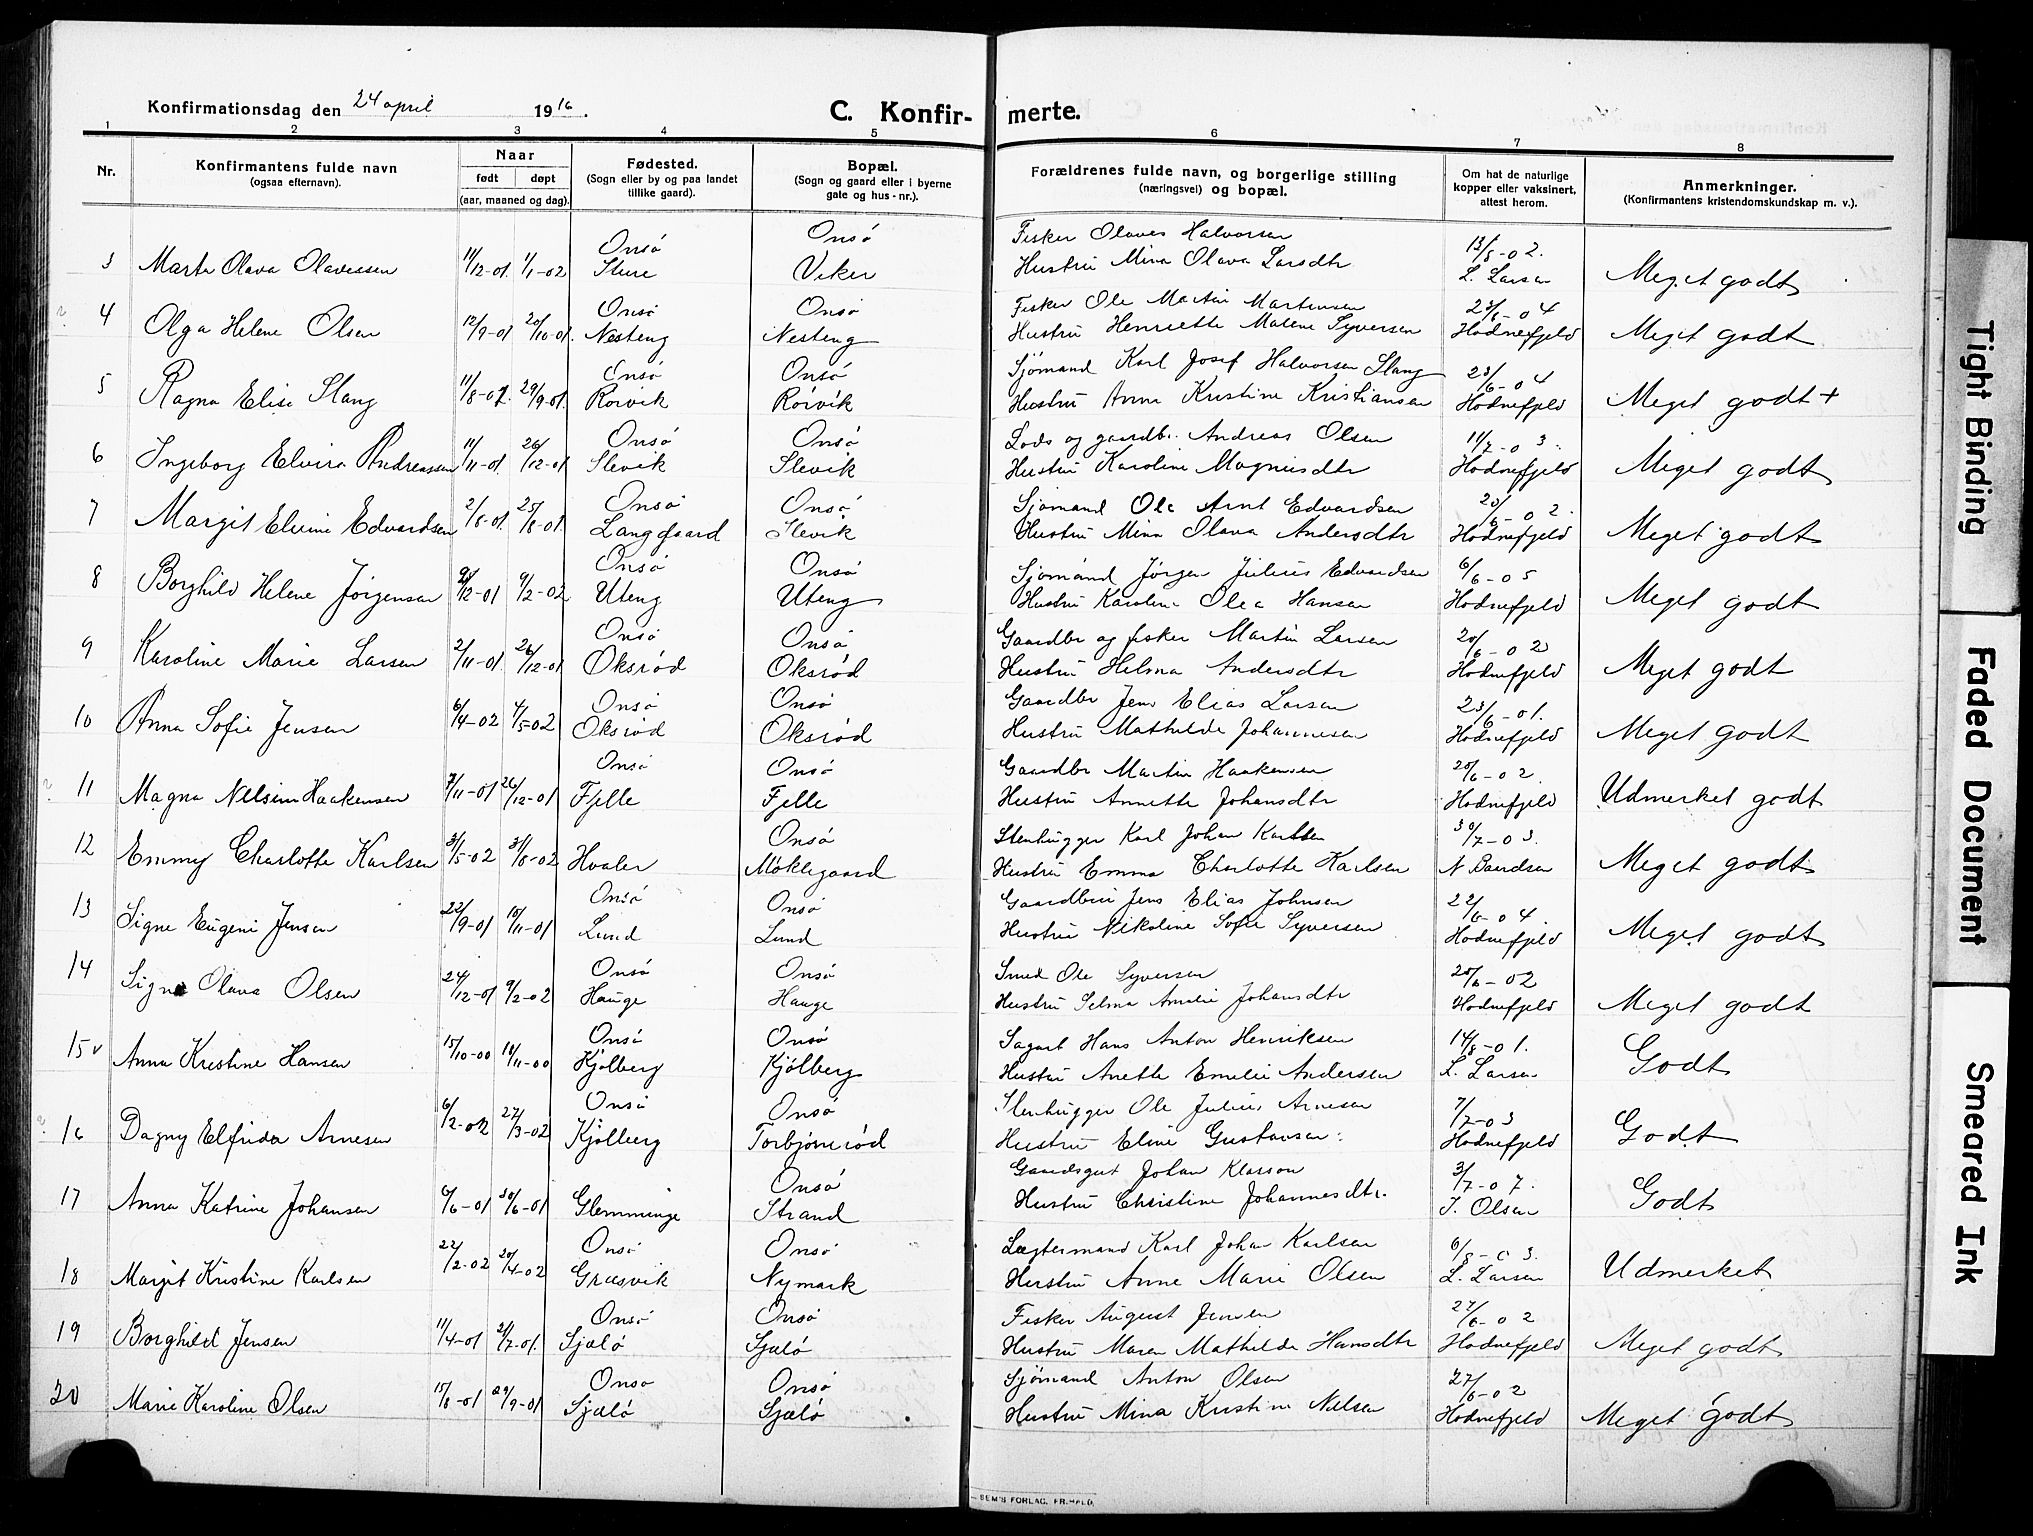 Konfirmationsdag den 24 april 1916. C. Konfir- merte.
1 2 3 4 5 6 7 8
Nr. Konfirmantens fulde navn (ogsaa efternavn). Naar født døpt (aar, maaned og dag). Fødested. (Sogn eller by og paa landet tillike gaard). Bopæl. (Sogn og gaard eller i byerne gate og hus-nr.). Forældrenes fulde navn, og borgerlige stilling (næringsvei) og bopæl. Om hat de naturlige kopper eller vaksinert, attest herom. Anmerkninger. (Konfirmantens kristendomskundskap m. v.).
Onsö Onsö Fisker Olaves Halvorsen 13/8-02.
3 Marta Olava Olavessen 11/12-01. 1/1-02 Sture Viker Hustru Mina Olava Larsdtr L. Larsen Meget godt
Onsö Onsö Fisker Ole Martin Martinsen
4 Olga Helene Olsen 12/9-01 20/10-01. Nesteng Nesteng Hustru Henriette Malene Syversen Hodnefjeld Meget godt
Onsö Onsö Sjömand Karl Josef Halvorsen Slang 23/6-04
5 Ragna Elise Slang 29/9-01. Rörvik Rörvik Hustru Anne Kristine Kristiansen Hodnefjeld Meget godt +
Onsö Onsö Lods og gaardbr. Andreas Olsen 11/7-03.
6 Ingeborg Elvira Andreassen 11/11-01. 26/12-01 Slevik Slevik Hustru Karoline Magnusdtr Hodnefjeld Meget godt
Onsö Onsö Sjömand Ole Arnt Edvardsen 20/6-02.
7 Margit Elvine Edvardsen 2/8-01. 25/8-01. Langgaard Slevik Hustru Mina Olava Andersdtr Hodnefjeld Meget godt
Onsö Onsö Sjömand Jörgen Julius Edvardsen 6/6-05
8 Borghild Helene Jørgensen 9/2-02 Uteng Uteng Hustru Karoline Olea Hansen Hodnefjeld Meget godt
Onsö Onsö Gaardbr og fisker Martin Larsen 20/6-02
9 Karoline Marie Larsen 2/11-01. 26/12-01 Oksröd Oksröd Hustru Helma Andersdtr Hodnefjeld Meget godt
Onsö Onsö Gaardbr Jens Elias Larsen 23/6-01.
10 Anna Sofie Jensen 6/4-02 4/5-02 Oksröd Oksröd Hustru Mathilde Johannesen Hodnefjeld Meget godt
Onsö Onsö Gaardbr Martin Haakensen 20/6-02.
11 Magna Nelsine Haakensen 7/11-01 26/12-01 Fjelle Fjelle Hustru Annette Johansdtr Hodnefjeld Udmerket godt
Onsö Stenhugger Karl Johan Karlsen 30/7-03.
12 Emmy Charlotte Karlsen 3/5-02 31/8-02 Hvaler Møklegaard Hustru Emma Charlotte Karlsen Meget godt
Onsö Onsö Gaardbru Jens Elias Johnsen 22/6-04.
13 Signe Eugeni Jensen 22/9-01 10/11-01 Lund Lund Hustru Nikoline Sofie Syversen Hodnefjeld Meget godt
Onsö Onsö Smed Ole Syversen 20/6-02
14 Signe Olava Olsen 24/12-01 9/2-02 Hauge Hauge Hustru Selma Amalie Johansdtr Hodnefjeld Meget godt
Onsö Onsö Sagarb Hans Anton Henriksen 14/8-01.
15 v Anna Kristine Hansen 15/10-00 18/11-00 Kjölberg Kjölberg Hustru Anette Emelie Andersen L. Larsen Godt
Onsö Onsö Stenhugger Ole Julius Arnesen 7/7-03
16 Dagny Elfrida Arnesen 6/2-02 27/3-02 Kjölberg Torbjörnröd Hustru Eline Gustavsen. Hodnefjeld Godt
Onsö Gaardsgut Johan Klasson 3/7-07.
17 Anna Katrine Johansen 6/6-01 30/6-01 Glemminge Strand Hustru Christine Johannesdtr. J. Olsen Godt
Onsö Onsö Lægtermand Karl Johan Karlsen 6/8-03.
18 Margit Kristine Karlsen 22/2-02 20/4-02 Græsvik Nymark Hustru Anne Marie Olsen L. Larsen Udmerket
Onsö Onsö Fisker August Jensen 27/6-02
19 Borghild Jensen 11/4-01 21/7-01. Sjælö Sjælö Hustru Maren Mathilde Hansdtr Hodnefjeld Meget godt
Onsö Onsö Sjömand Anton Olsen 27/6-02
20 Marie Karoline Olsen 15/8-01 29/9-01 Sjælö Sjælö Hustru Mina Kristine Nilsen Hodnefjeld Meget godt
SEM'S FORLAG, FR.HALD.
Tight Binding
Faded Document
Smeared Ink